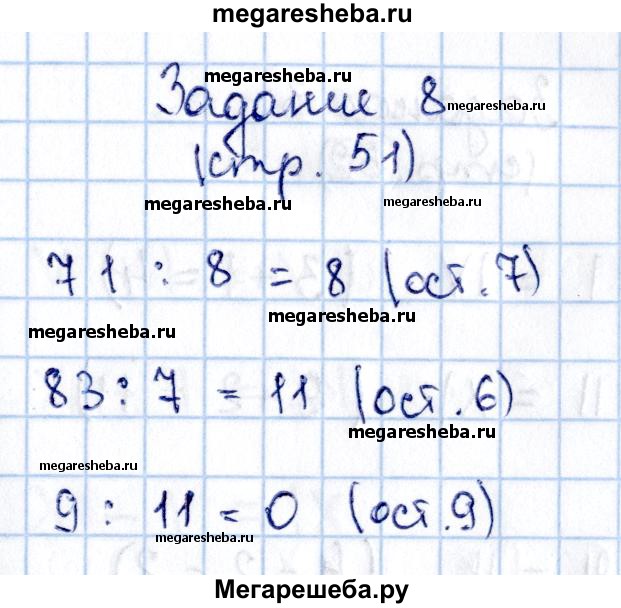 megaresheba.ru
megaresheba.ru
Задание 8 megaresheba.ru
(стр. 51)
megaresheba.ru megaresheba.ru
71 : 8 = 8 (ост. 7)
megaresheba.ru megaresheba.ru
83 : 7 = 11 (ост. 6)
megaresheba.ru
megaresheba.ru
9 : 11 = 0 (ост. 9)
megaresheba.ru
Мегарешеба.ру